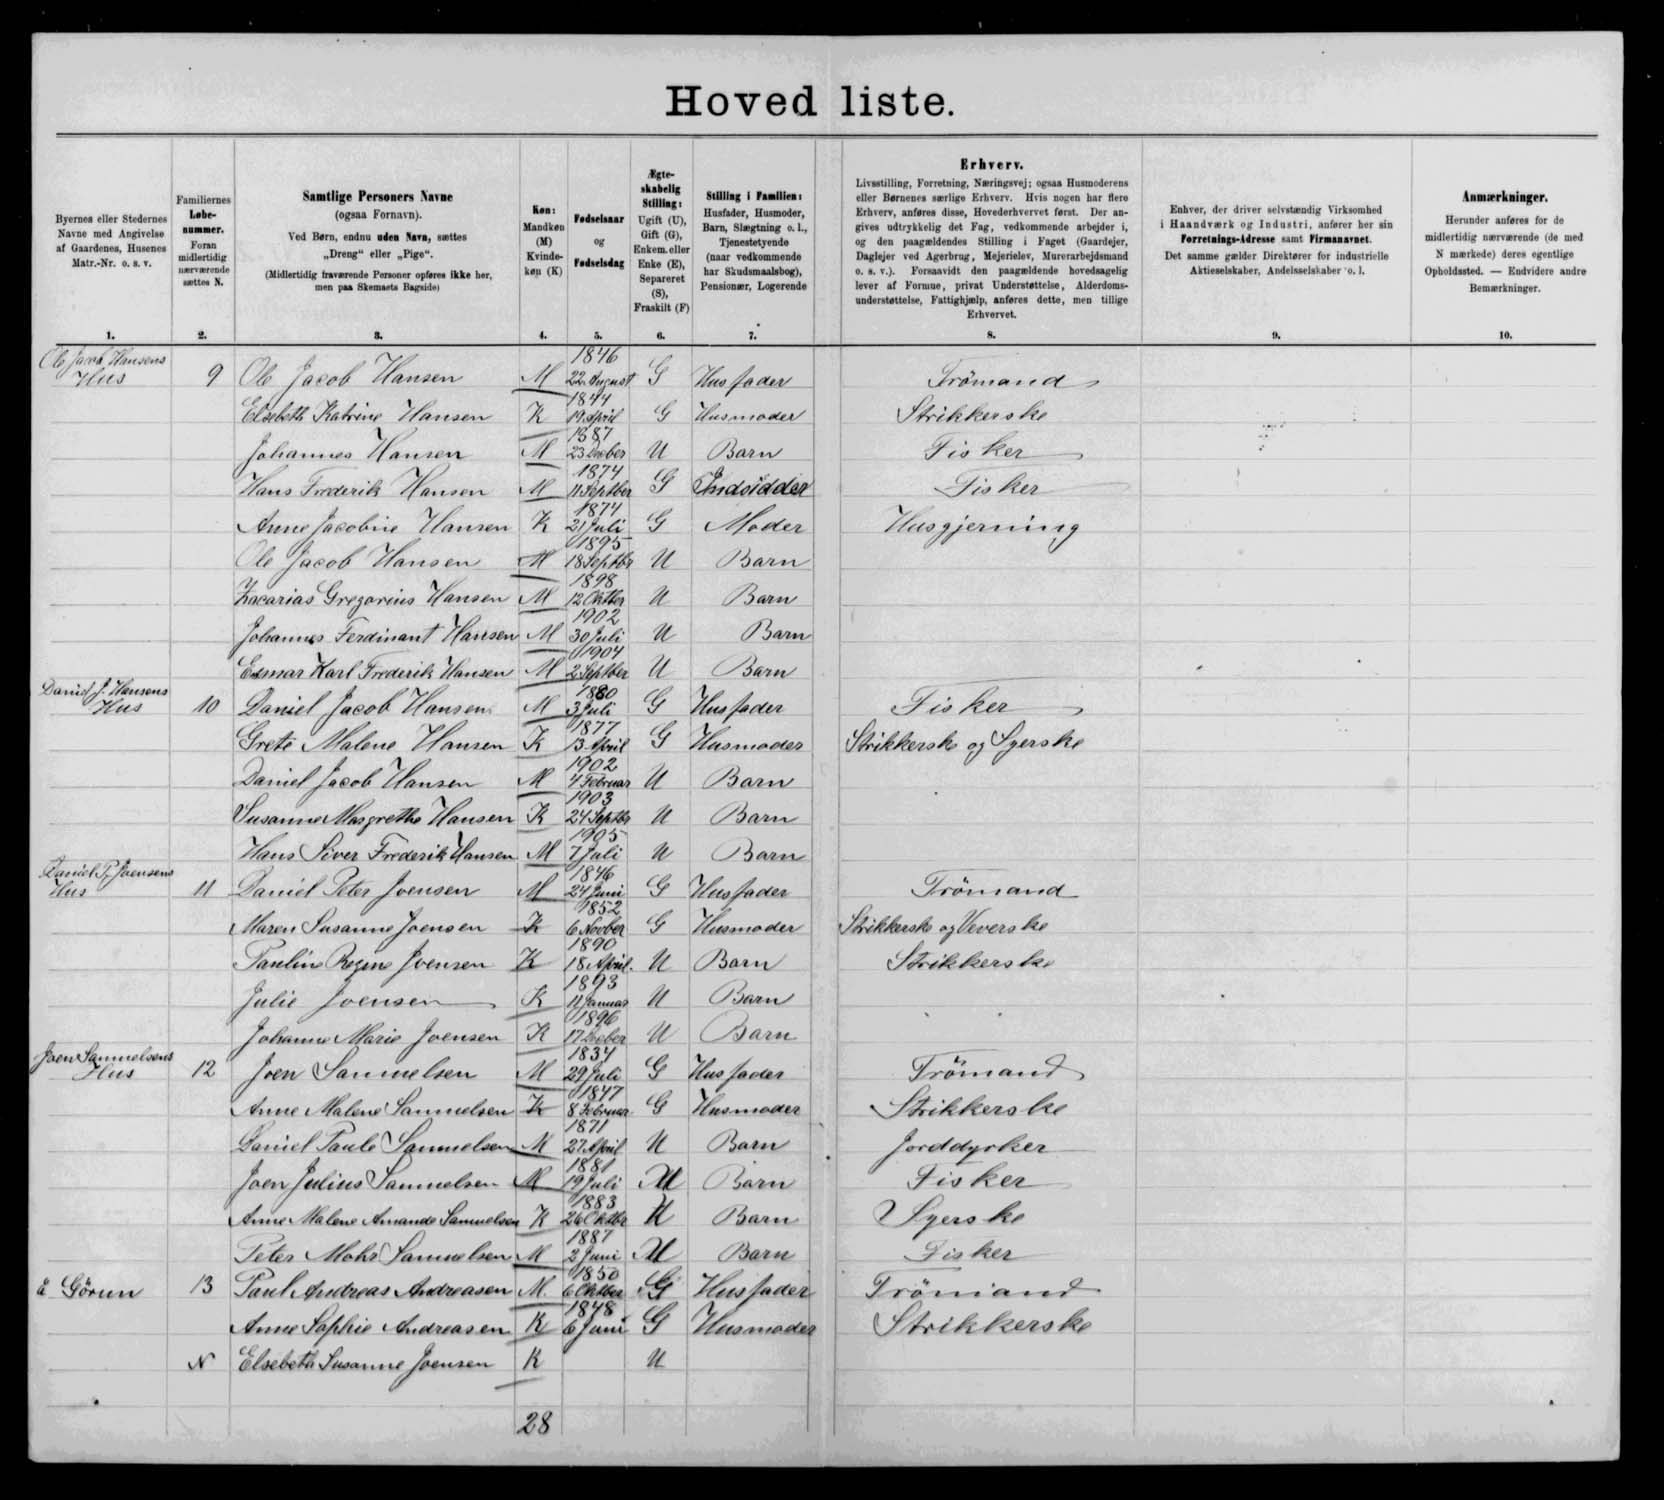 Hovedliste.
Byernes eller Stedernes
Navne med Angivelse
af Gaardenes, Husenes
Matr.-Nr. o. s. v.
1.
Familiernes
Løbe-
nummer.
Foran
midlertidig
nærværende
sættes N.
2.
Samtlige Personers Navne
(ogsaa Fornavn).
Ved Børn, endnu uden Navn, sættes
„Dreng" eller „Pige".
(Midlertidig fraværende Personer opføres ikke her,
men paa Skemaets Bagside)
3.
Køn:
Mandkøn
(M)
Kvinde-
køn (K)
4.
Fødselsaar
og
Fødselsdag
5.
Ægte-
skabelig
Stilling:
Ugift (U),
Gift (G),
Enkem. eller
Enke (E),
Separeret
(S),
Fraskilt (F)
6.
Stilling i Familien:
Husfader, Husmoder,
Barn, Slægtning o. l.,
Tjenestetyende
(naar vedkommende
har Skudsmaalsbog),
Pensionær, Logerende
7.
Erhverv.
Livsstilling, Forretning, Næringsvej; ogsaa Husmoderens
eller Børnenes særlige Erhverv. Hvis nogen har flere
Erhverv, anføres disse, Hovederhvervet først. Der an-
gives udtrykkelig det Fag, vedkommende arbejder i,
og den paagældendes Stilling i Faget (Gaardejer,
Daglejer ved Agerbrug, Mejerielev, Murerarbejdsmand
o. s. v.). Forsaavidt den paagældende hovedsagelig
lever af Formue, privat Understøttelse, Alderdoms-
understøttelse, Fattighjælp, anføres dette, men tillige
Erhvervet.
8.
Enhver, der driver selvstændig Virksomhed
i Haandværk og Industri, anfører her sin
Forretnings-Adresse samt Firmanavnet.
Det samme gælder Direktører for industrielle
Aktieselskaber, Andelsselskaber o. l.
9.
Anmærkninger.
Herunder anføres for de
midlertidig nærværende (de med
N mærkede) deres egentlige
Opholdssted. — Endvidere andre
Bemærkninger.
10.
Ole Jacob Hansens Hus 9 Ole Jacob Hansen M 1846 22. August G Husfader Trömand
Elsebeth Katrine Hansen K 1844 19 April G Husmoder Strikkerske
Johannes Hansen M 1887 23 Deeber U Barn Fisker
Hans Frederik Hansen M 1874 11 Septber G Indsidder Fisker
Anne Jacobine Hansen K 1874 21 Juli G Moder Husgjerning
Ole Jacob Hansen M 1895 18 Septbr U Barn
Zacarias Gregorius Hansen M 1898 12 Oktber U Barn
Johannes Ferdinant Hansen M 1902 30 Juli U Barn
Esmar Karl Frederik Hansen M 1904 2 Septber U Barn
Daniel J. Hansens Hus 10 Daniel Jacob Hansen M 1880 3 Juli G Husfader Fisker
Grete Malene Hansen K 1877 13. April G Husmoder Strikkerske og Syerske
Daniel Jacob Hansen M 1902 4 Februar U Barn
Susanne Margrethe Hansen K 1903 24 Septbr U Barn
Hans Siver Frederik Hansen M 1905 7 Juli U Barn
Daniel P. Joensens Hus 11 Daniel Peter Joensen M 1846 24 Juni G Husfader Trömand
Maren Susanne Joensen K 1852 6 Novber G Husmoder Strikkerske og Veverske
Pauline Regine Joensen K 1890 18 April. U Barn Strikkerske
Julie Joensen K 1893 11 Januar U Barn
Johanne Marie Joensen K 1896 17 Deeber U Barn
Joen Samuelsens Hus 12 Joen Samuelsen M 1834 29 Juli G Husfader Trömand
Anne Malene Samuelsen K 1847 8 Februar G Husmoder Strikkerske
Daniel Paule Samuelsen M 1871 27 April U Barn Jorddyrker
Joen Julius Samuelsen M 1881 19 Juli U Barn Fisker
Anne Malene Amande Samuelsen K 1883 26 Oktbr U Barn Syerske
Peter Mohr Samuelsen M 1887 2 Juni U Barn Fisker
á Görun 13 Paul Andreas Andreasen M. 1850 6 Oktber G Husfader Trömand
Anne Sophie Andreasen K 1848 6 Juni G Husmoder Strikkerske
N Elsebeth Susanne Joensen K U
28